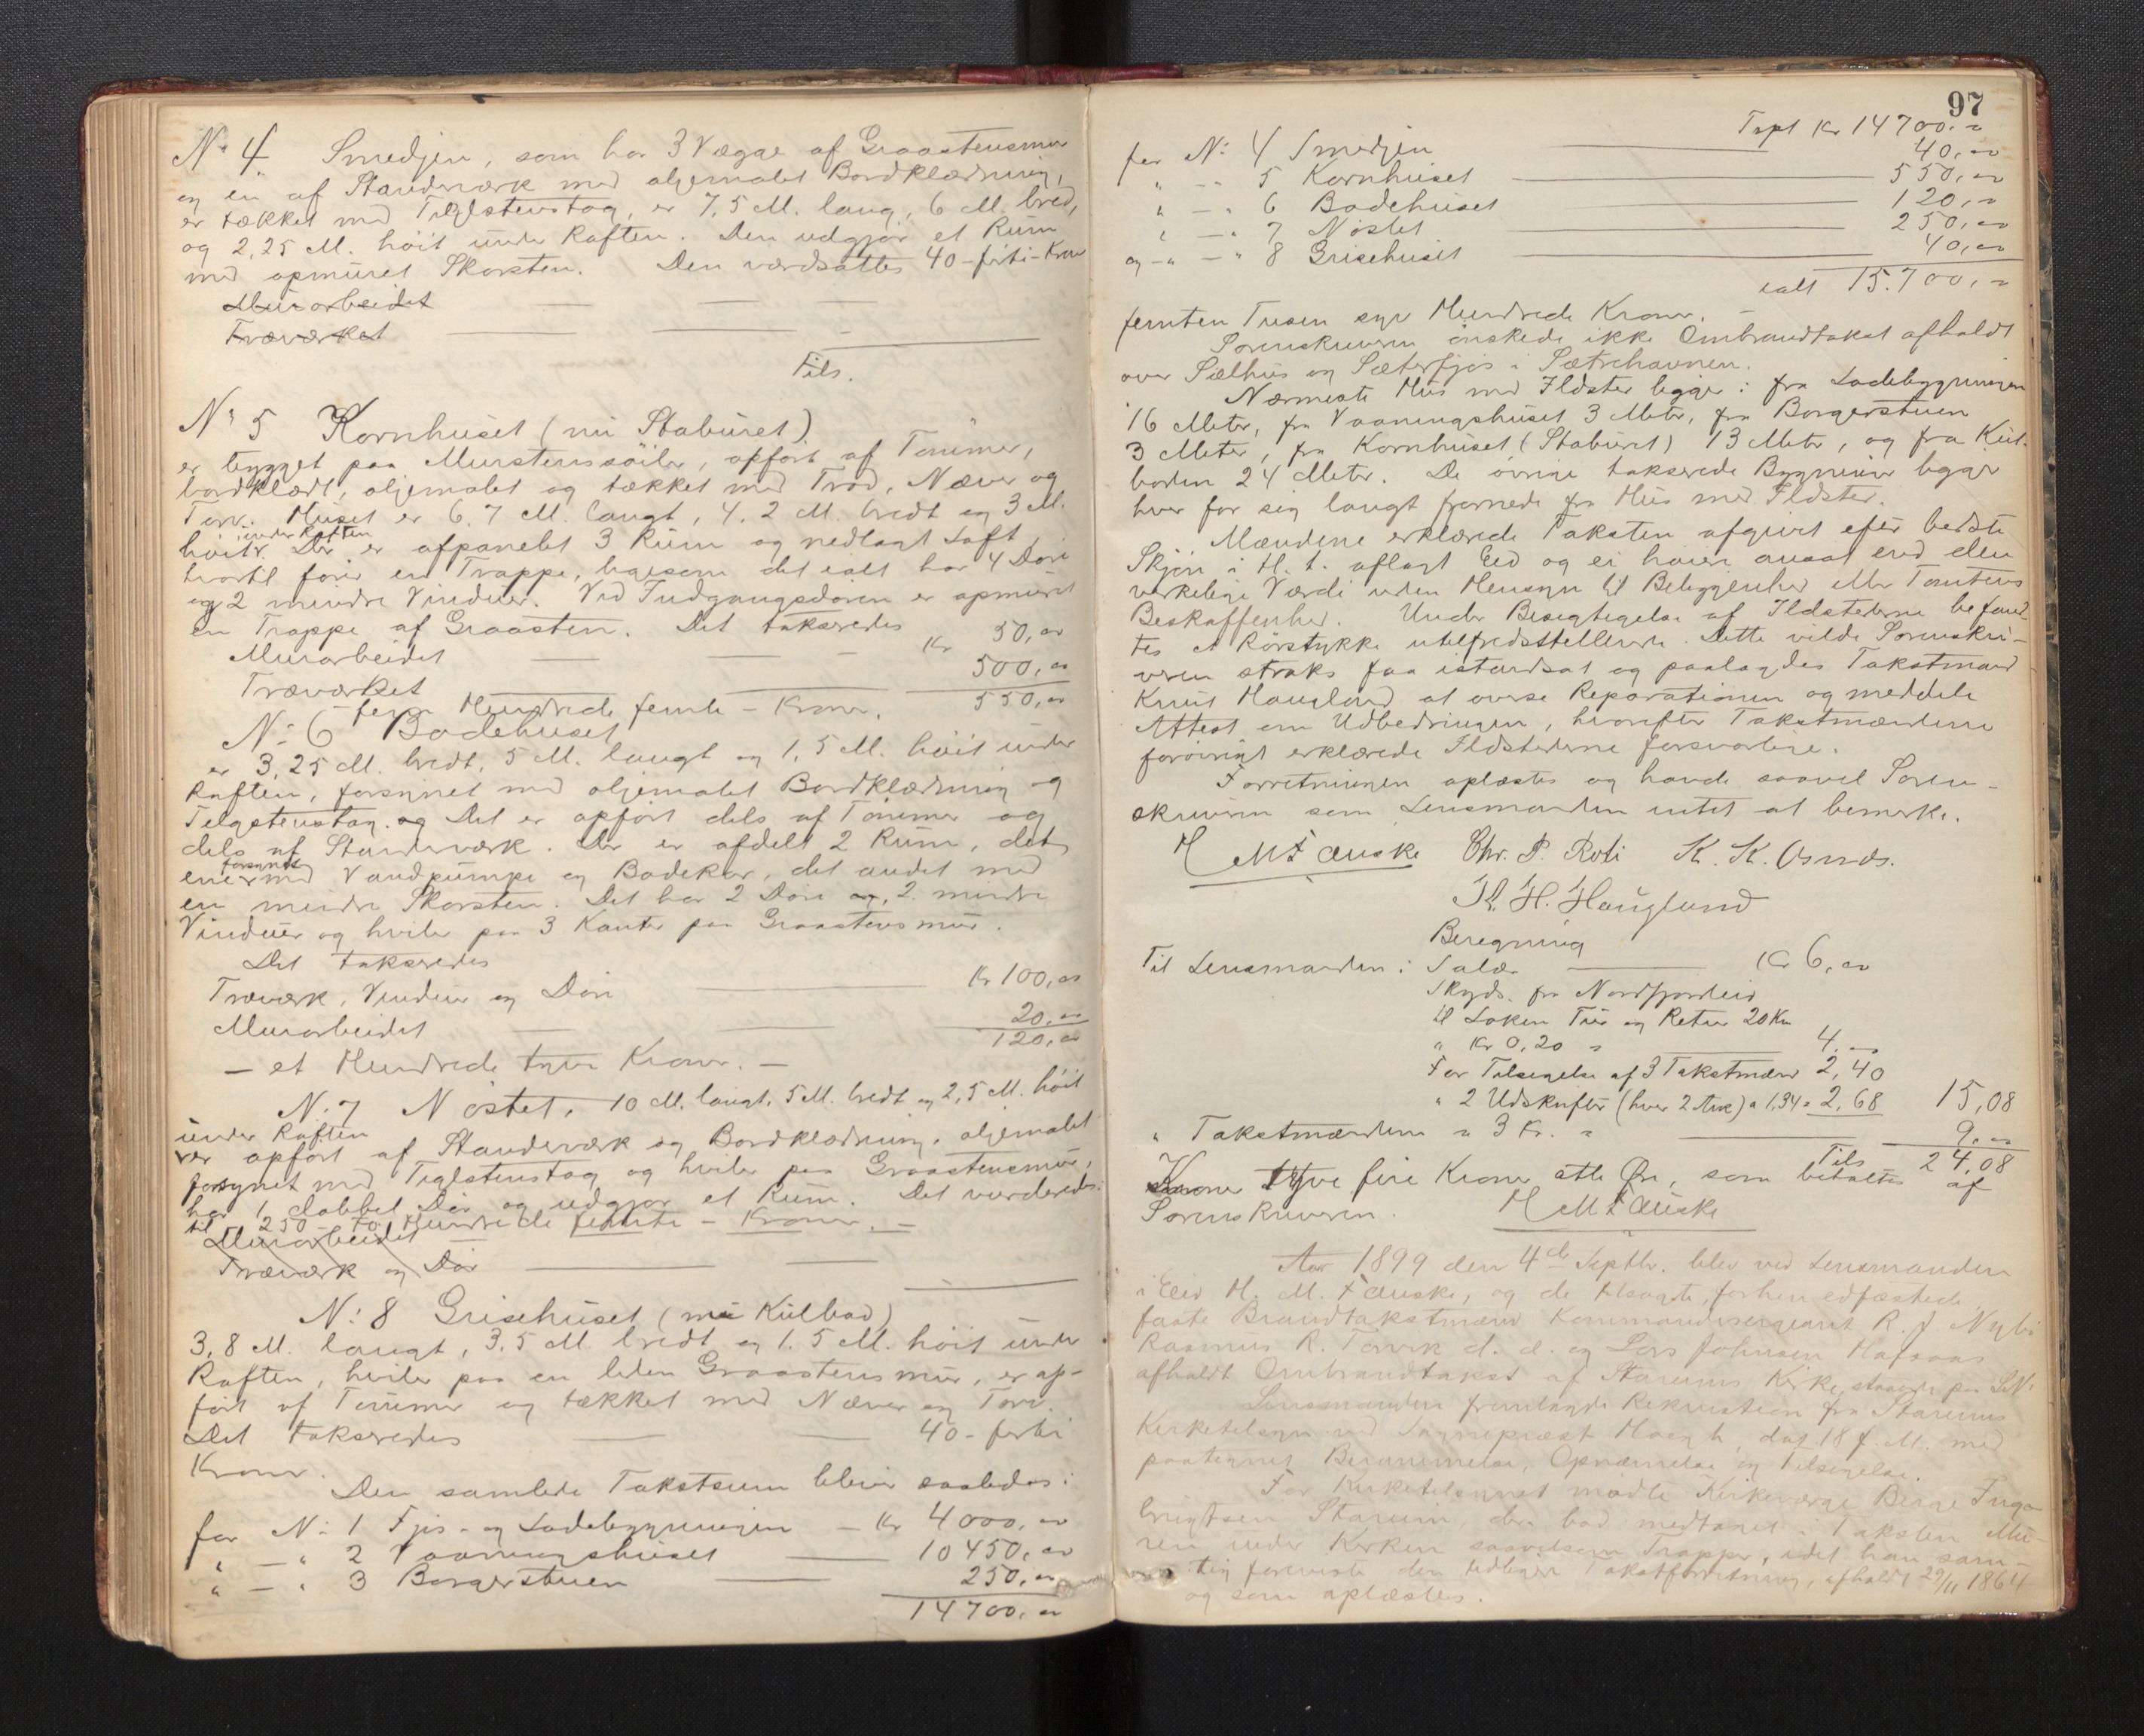 No 4 Smedjen, som har 3 Vægge af Graastensmur
og en af Standværk med oljemalet Bordklædning,
er tækket med Teglstenstag, er 7,5 M. lang, 6 M. bred,
og 2,25 M. höit under Raften. Den udgjør et Rum
med opmuret Skorsten. Den værdsattes 40-förti-Kroner
Murarbeidet
Træværket
Tils.
No 5 Kornhuset (nu Staburet)
er bygget paa Murstenssöiler, opfört af Tömmer,
bordklædt, oljemalet og tækket med Trod, Næver og
Torv. Huset er 6,7 M. langt, 4,2 M. bredt og 3 M.
höit under Raften. Der er afpanelet 3 Rum og nedlagt Loft
hvortil förer en Trappe, ligesom det ialt har 4 Döre
og 2 mindre Vinduer. Ved Indgangsdören er opmuret
en Trappe af Graasten. Det takseredes
Murarbeidet Kr 50,00
Træværket 500,00
fem Hundrede femti - Kroner. 550,00
No 6 Badehuset
er 3,25 M. bredt, 5 M. langt og 1,5 M. höit under
Raften, forsynet med oljemalet Bordklædning og
Teglstenstag. og Det er opfört dels af Tömmer og
dels af Standværk. Der er afdelt 2 Rum, det
ene forsynet med Vandpumpe og Badekar, det andet med
en mindre Skorsten. Det har 2 Döre og 2 mindre
Vinduer og hviler paa 3 Kanter paa Graastensmur.
Det takseredes
Træværk, Vinduer og Döre Kr 100,00
Murarbeidet 20,00
120,00
- et Hundrede tyve Kroner. -
No 7 Nöstet, 10 M. langt, 5 M. bredt og 2,5 M. höit
under Raften
er opfört af Standværk og Bordklædning, oljemalet
forsynet med Teglstenstag og hviler paa Graastensmur,
har 1 dobbel Dör og udgjør et Rum. Det vurderedes
til 250 - to Hundrede femti - Kroner. -
Murarbeidet
Træværk og Dör
No 8 Grisehuset (nu Kulbod)
3,8 M. langt, 3,5 M. bredt og 1,5 M. höit under
Raften, hviler paa en liden Graastensmur, er op-
fört af Tömmer og tækket med Næver og Torv.
Det takseredes 40 - förti
Kroner.
Den samlede Takstsum bliver saaledes:
for No 1 Fjös- og Ladebygningen - Kr 4000,00
" - " 2 Vaaningshuset 10450,00
" - " 3 Borgerstuen 250,00
14700,00
97
Trpt Kr 14700,00
for No 4 Smedjen 40,00
" - " 5 Kornhuset 550,00
" - " 6 Badehuset 120,00
" - " 7 Nöstet 250,00
og - " - " 8 Grisehuset 40,00
ialt 15.700,00
femten Tusen syv Hundrede Kroner. -
Sorenskriveren önskede ikke Ombrandtakst afholdt
over Sælhus og Sæterfjös i Sætrehavnen.
Nærmeste Hus med Ildster ligger: fra Ladebygningen
16 Meter, fra Vaaningshuset 3 Meter, fra Borgerstuen
3 Meter, fra Kornhuset (Staburet) 13 Meter, og fra Kul-
boden 24 Meter. De övrige takserede Bygninger ligger
hver for sig langt fjernede fra Hus med Ildster.
Mændene erklærede Taksten afgivet efter bedste
Skjön i H. t. aflagt Eed og ei höiere ansat end den
virkelige Værdi uden Hensyn til Beliggenhed eller Tomtens
Beskaffenhed. Under Besigtigelse af Ildstederne befand-
tes et Rörstykke utilfredsstellende. Dette vilde Sorenskri-
veren straks faa istandsat og paalagdes Takstmand
Knut Haugland at overse Reparationen og meddele
Attest om Udbedringen, hvorefter Takstmændene
forövrigt erklærede Ildstederne forsvarlige.
Forretningen oplæstes og havde saavel Soren-
skriveren som Lensmanden intet at bemerke.
H M Fauske Chr. P. Roti K. K. Osnæs.
K. H. Hauglund
Beregning
Til Lensmanden: Salær Kr 6,00
Skyds fra Nordfjordeid
til Loken Tur og Retur 20 Km
" Kr 0,20 = 4,00
For Tilsigelse af 3 Takstmænd 2,40
" 2 Udskrifter (hver 2 Ark) a 1,34 = 2,68 15,08
" Takstmændene a 3 Kr. = 9,00
Tils 24,08
Kroner tyve fire Kroner otte Öre, som betaltes af
Sorenskriveren. H M Fauske
Aar 1899 den 4de Septbr. blev ved Lensmanden
i Eid H. M. Fauske, og de tilsagte, forhen edfæstede
faste Brandtakstmænd Kommandersergeant R. J. Nybö
Rasmus R. Torvik d. æ. og Lars Johnsen Hafsaas
afholdt Ombrandtakst af Starums Kirke, staaende paa
Lensmanden fremlagde Rekvisition fra Starums
Kirketilsyn ved Sognepræst Haegh, dat 18 f. M. med
paategnet Berammelse, Opnævnelse og Tilsigelse.
For Kirketilsynet mödte Kirkeværge Berge Inge-
brigtsen Starum, der bad medtaget i Taksten Mu-
ren under Kirken saavelsom Trapper, idet han sam-
tidig foreviste den tidligere Takstforretning, afholdt 29/11 1864
og som oplæstes.